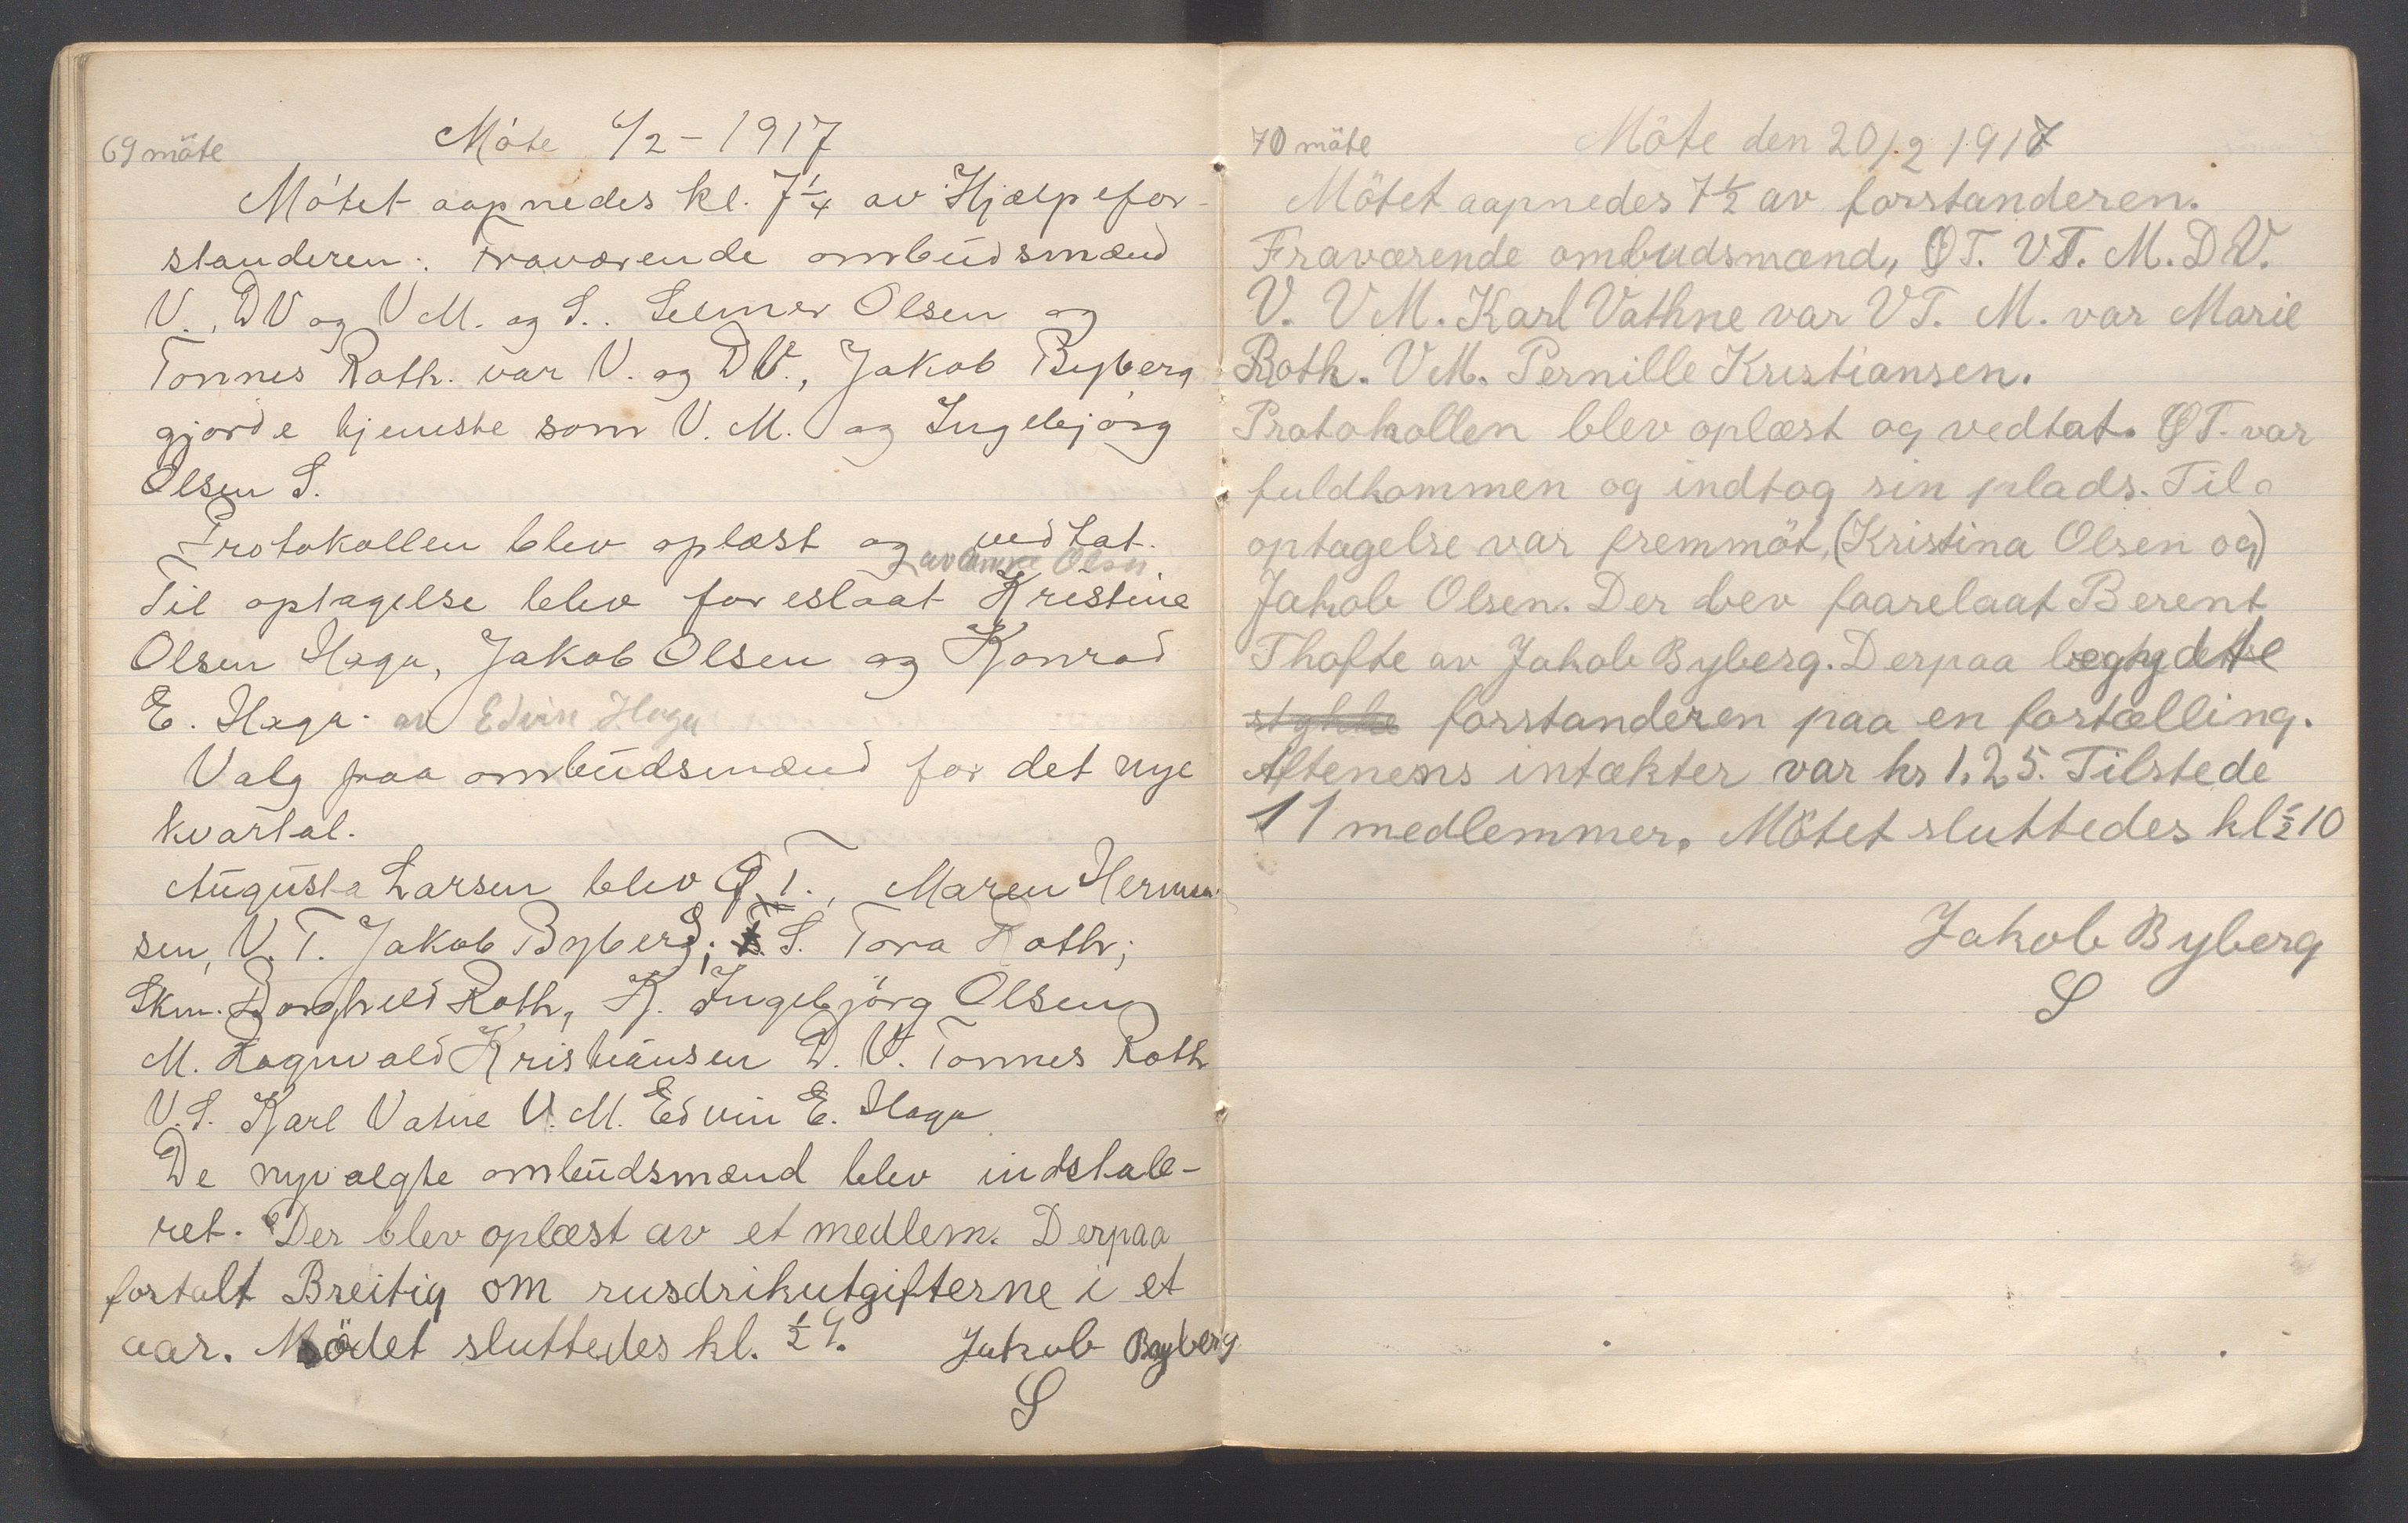 69 möte
Möte 6/2 - 1917
Mötet aapnedes kl. 7 1/4 av Hjælpefor-
standeren. Fraværende ombudsmænd
V., DV og V M. og S.. Selmer Olsen og
Tønnes Roth. var V. og DV., Jakob Byberg
gjorde tjeneste som V. M. og Ingebjörg
Olsen S.
Protokollen blev oplæst og vedtat.
av Olsen
Til optagelse blev foreslaat Kristine
Olsen Haga, Jakob Olsen og Konrad
E. Haga. av Edvin Haga
Valg paa ombudsmænd for det nye
kvartal.
Augusta Larsen blev Ø T., Maren Herman-
sen, V. T. Jakob Byberg; S. Tora Roth;
Skm. Borghild Roth, K. Ingebjörg Olsen
M. Ragnvald Kristiansen D. V. Tonnes Roth
V. S. Karl Vatne V. M. Edvin E. Haga
De nyvalgte ombudsmænd blev indstale-
ret. Der blev oplæst av et medlem. Derpaa
fortalt Breitig om rusdrikutgifterne i et
aar. Mödet sluttedes kl. 1/2 9. Jakob Byberg
S
70 möte
Möte den 20/2 1917
Mötet aapnedes 7 1/2 av forstanderen.
Fraværende ombudsmænd, ØT. VT. M. DV.
V. VM. Karl Vathne var VT. M. var Marie
Roth. VM. Pernille Kristiansen.
Protokollen blev oplæst og vedtat. ØT. var
fuldkommen og indtog sin plads. Til
optagelse var fremmöt, (Kristina Olsen og)
Jakob Olsen. Der bev faarelaat Berent
Thofte av Jakob Byberg. Derpaa begydte
stykke forstanderen paa en fortælling.
Aftenens intækter var kr 1,25. Tilstede
11 medlemmer. Mötet sluttedes kl 1/2 10
Jakob Byberg
S